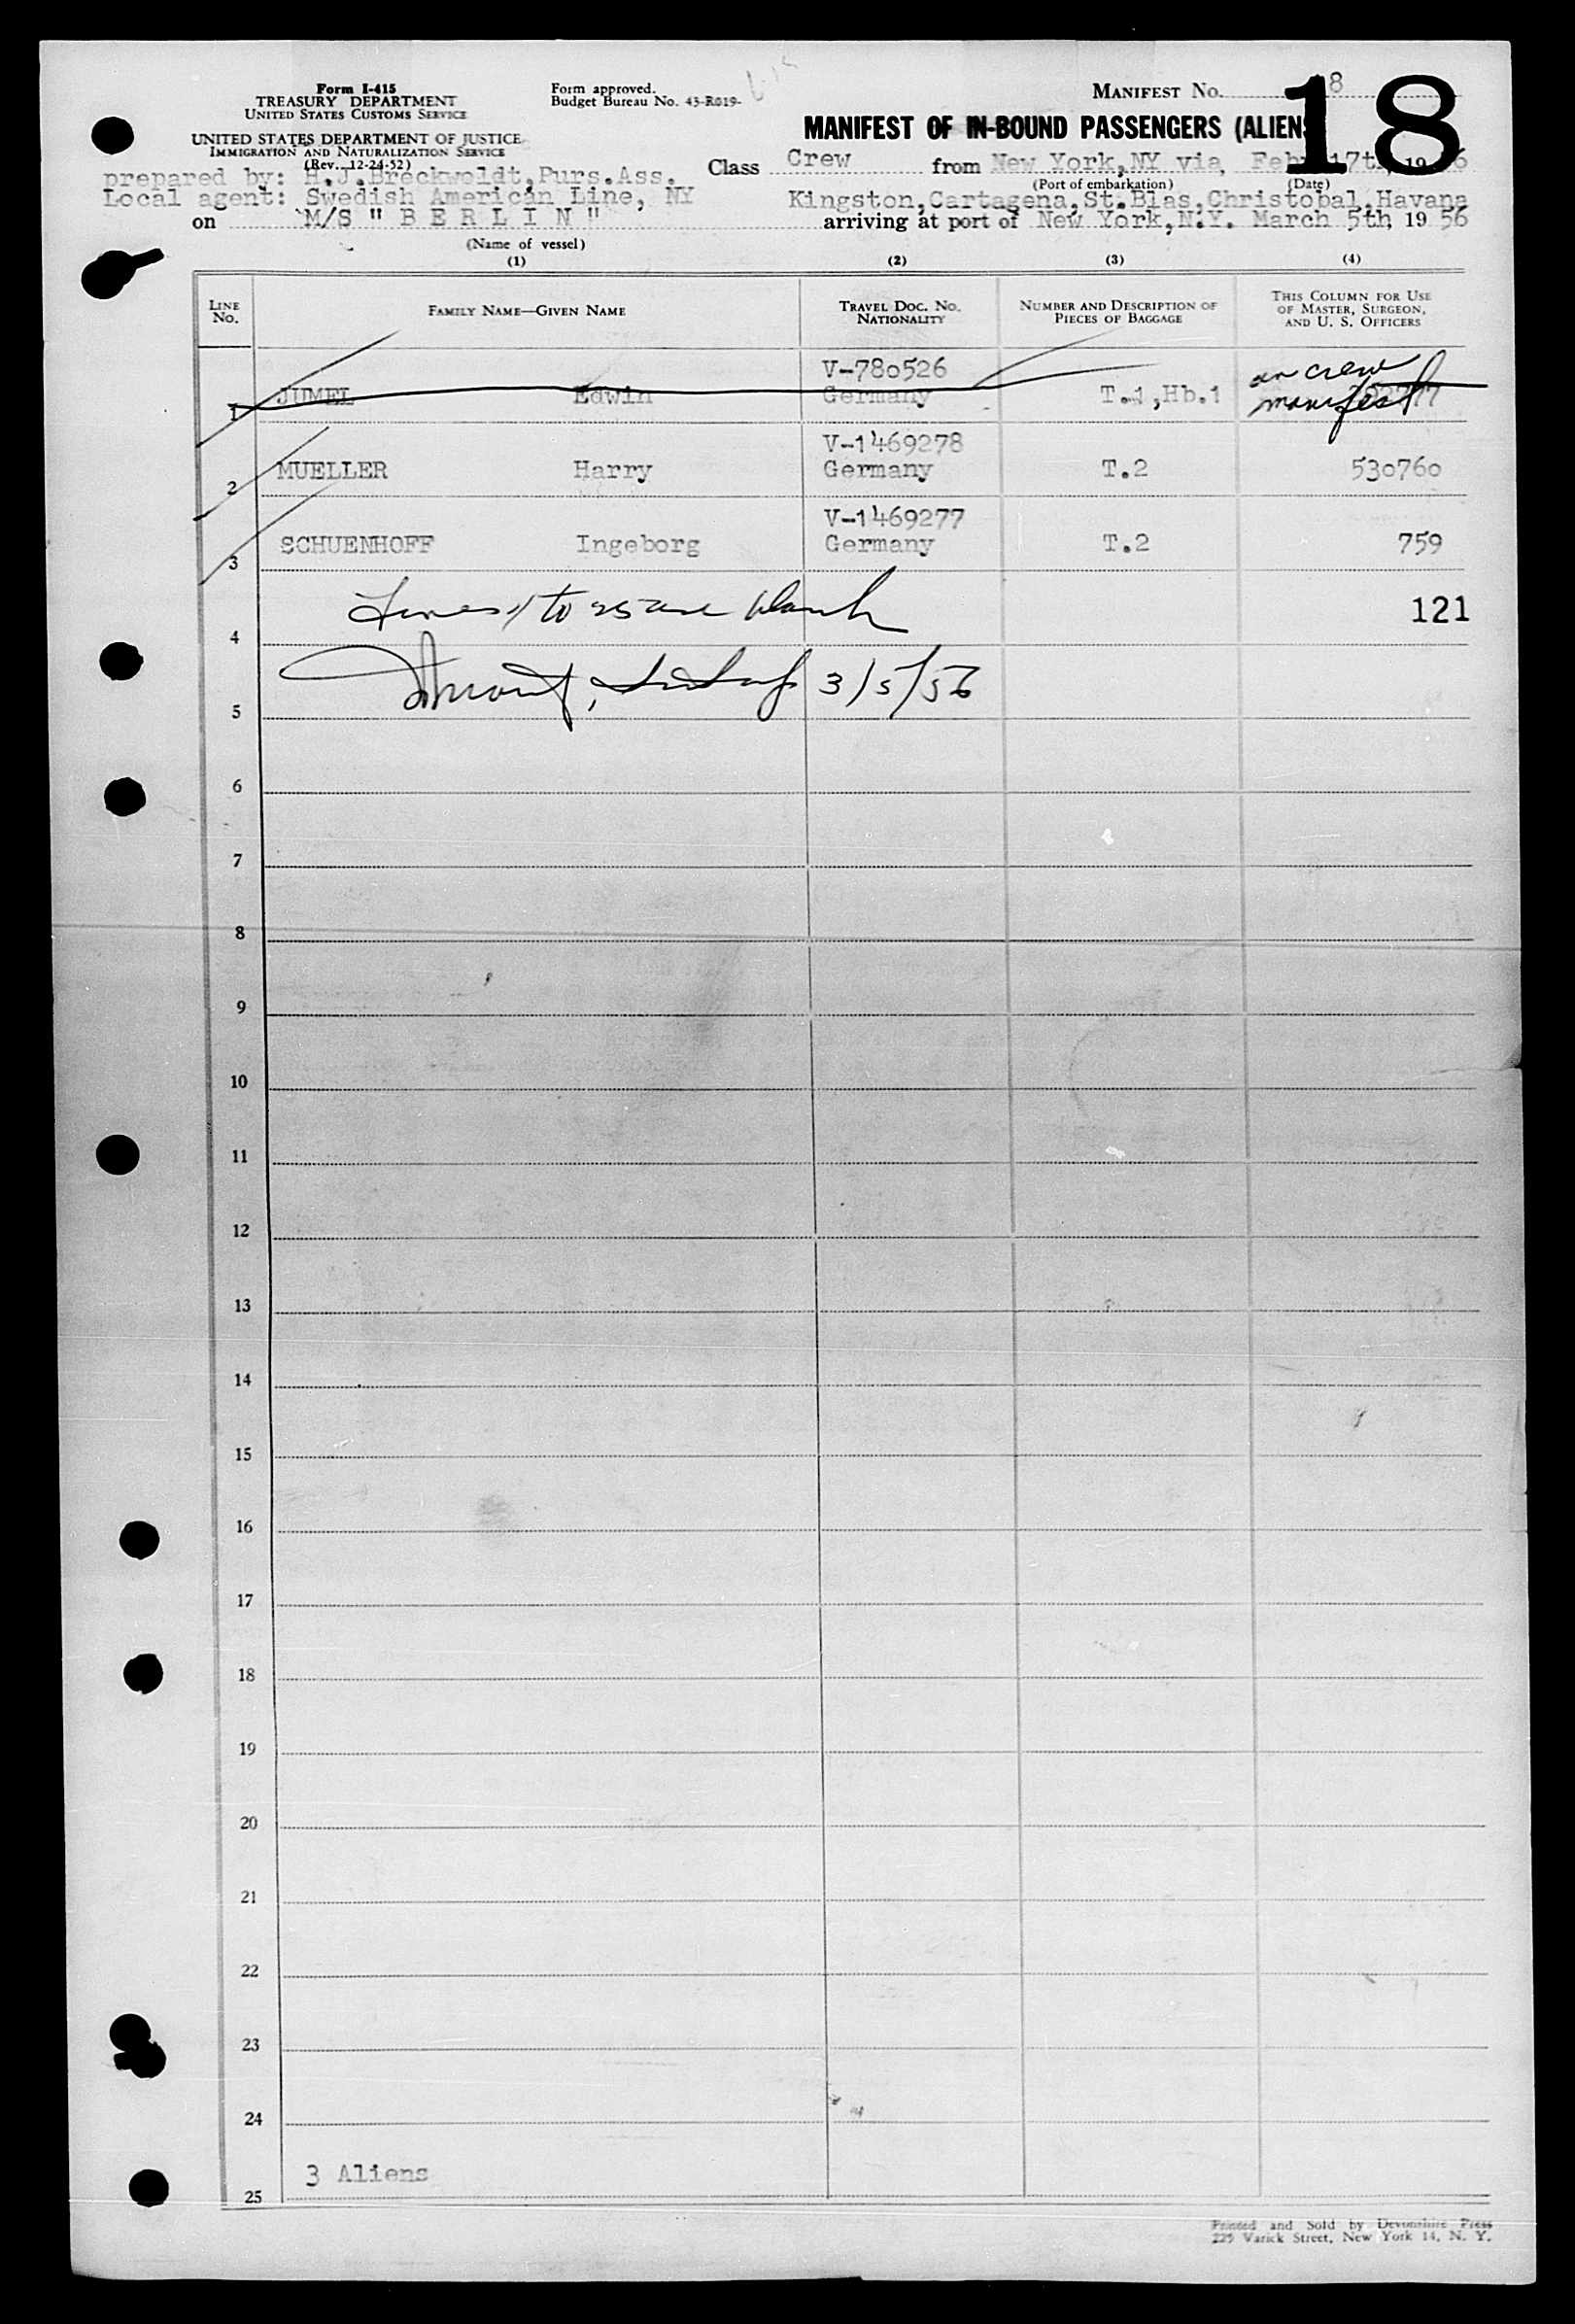 Form I-415
TREASURY DEPARTMENT
UNITED STATES CUSTOMS SERVICE
UNITED STATES DEPARTMENT OF JUSTICE
IMMIGRATION AND NATURALIZATION SERVICE
(Rev. 12-24-52)
Form approved.
Budget Bureau No. 43-R019-
MANIFEST No. 8
18
MANIFEST OF IN-BOUND PASSENGERS (ALIEN
prepared by: H.J.Breckwoldt,Purs.Ass.
Local agent: Swedish American Line, NY
on M/S " B E R L I N "
(Name of vessel)
Class Crew from New York,NY via, Feb. 17th, 19 56
(Port of embarkation) (Date)
Kingston,Cartagena,St.Blas,Christobal,Havana
arriving at port of New York,N.Y. March 5th, 19 56
(1) (2) (3) (4)
LINE No. FAMILY NAME—GIVEN NAME TRAVEL DOC. No. NATIONALITY NUMBER AND DESCRIPTION OF PIECES OF BAGGAGE THIS COLUMN FOR USE OF MASTER, SURGEON, AND U. S. OFFICERS
V-780526
1 JUMEL Edwin Germany T.1,Hb.1 on crew manifest
V-1469278
2 MUELLER Harry Germany T.2 530760
V-1469277
3 SCHUENHOFF Ingeborg Germany T.2 759
4 Lines 1 to 25 are blank 121
5 3/5/56
6
7
8
9
10
11
12
13
14
15
16
17
18
19
20
21
22
23
24
25 3 Aliens
Printed and Sold by Devonshire Press
225 Varick Street, New York 14, N. Y.